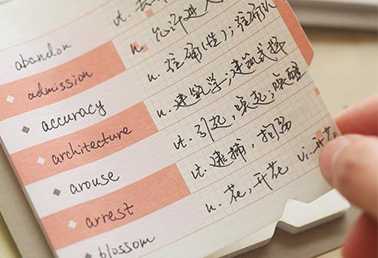 abandon vt.
admission n. 允许进入
accuracy n. 准确(性);准确度
architecture n. 建筑学;建筑式样
arouse vt. 引起,唤起;唤醒
arrest vt. 逮捕,拘留
blossom n. 花,开花 vi.开花